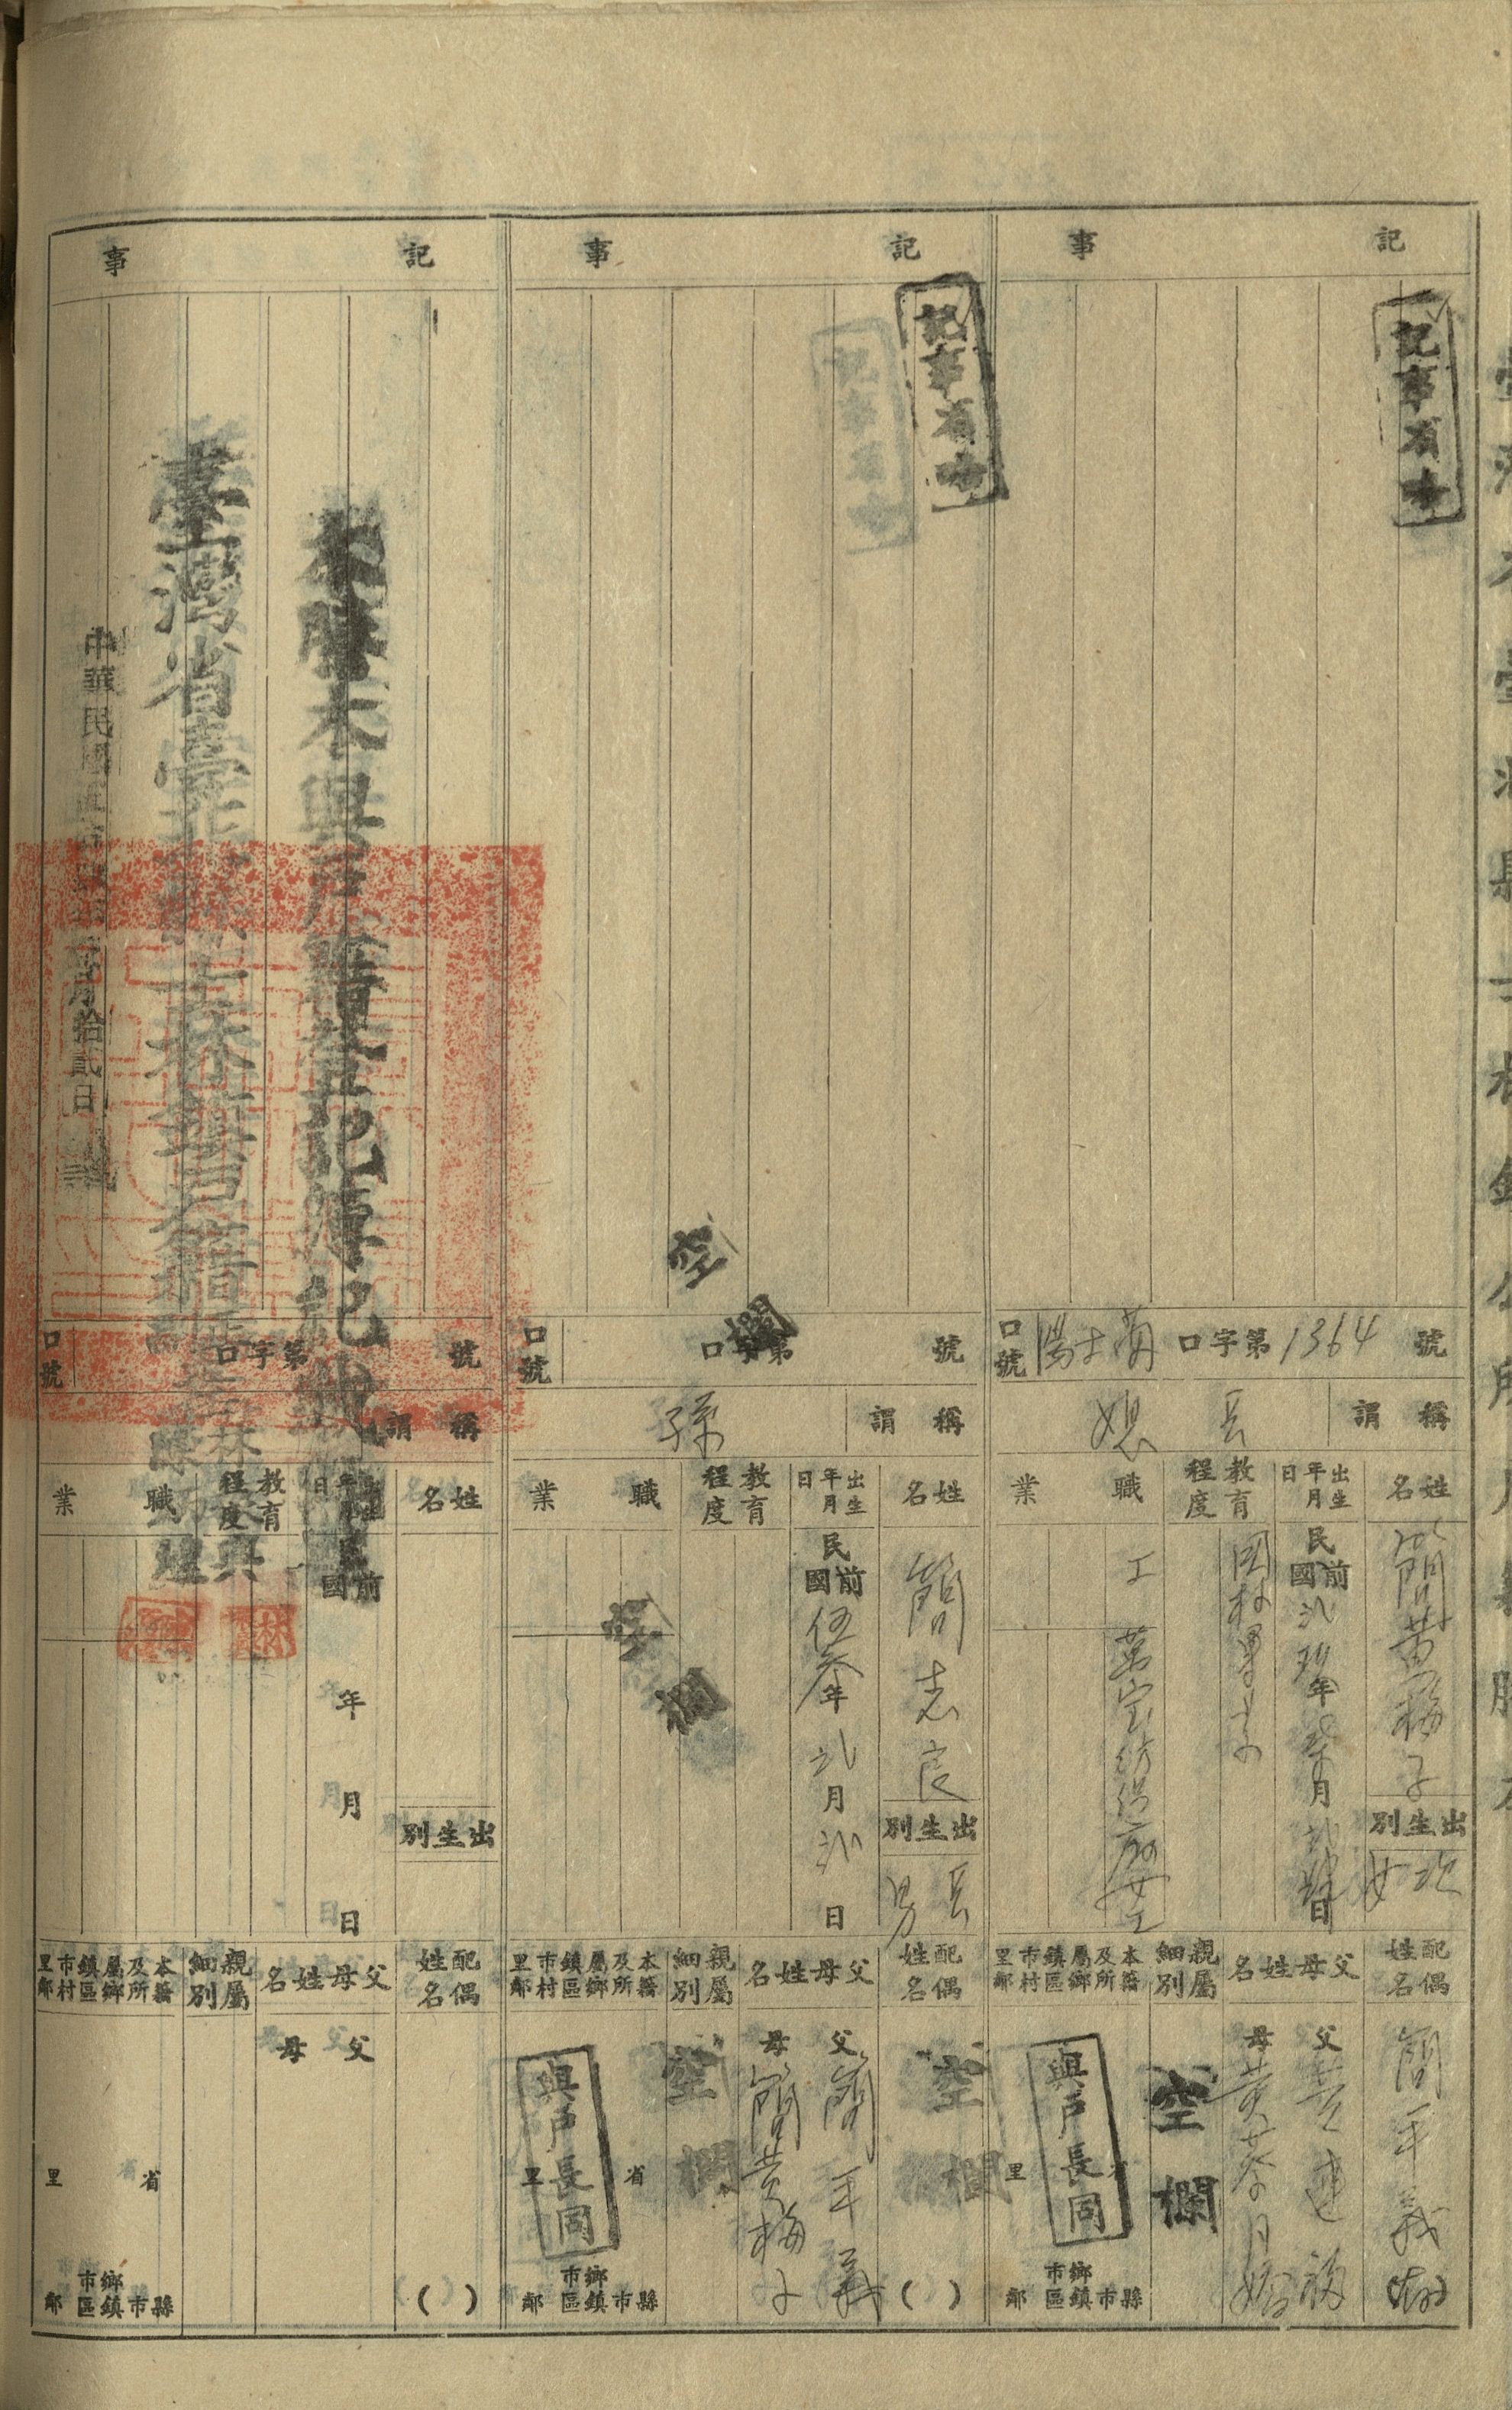 記事
記事有ㄊ
號 1364 第字口 陽士蘭 口號
稱謂
長媳
姓名
簡黃梅子
出生別
次女
出生年月日
民國前
貳玖年柒月貳 日
教育程度
國校畢業
職業
工
萬寶紡織廠女工
配偶姓名
簡平義(存)
父母姓名
父
黃連福
母
黃蔡月嬌
親屬細別
空欄
本籍及所屬鄉鎮區市村里鄰
與戶長同
省
縣市鄉鎮市區
里
鄰
記事
記事有ㄊ
號
第字口
口號
空欄
稱謂
孫
姓名
簡志良
出生別
長男
出生年月日
民國前
伍參年貳月貳日
教育程度
職業
空欄
配偶姓名
空欄
( )
父母姓名
父
簡平義
母
簡黃梅子
親屬細別
空欄
本籍及所屬鄉鎮區市村里鄰
與戶長同
省
縣市鄉鎮市區
里
鄰
記事
號
第字口
口號
稱謂
姓名
出生別
出生年月日
民國前
年
月
日
教育程度
職業
配偶姓名
( )
父母姓名
父
母
親屬細別
本籍及所屬鄉鎮區市村里鄰
省
縣市鄉鎮市區
里
鄰
本謄本與戶籍登記簿記載
臺灣省臺北縣士林鎮戶籍
中華民國 拾貳日